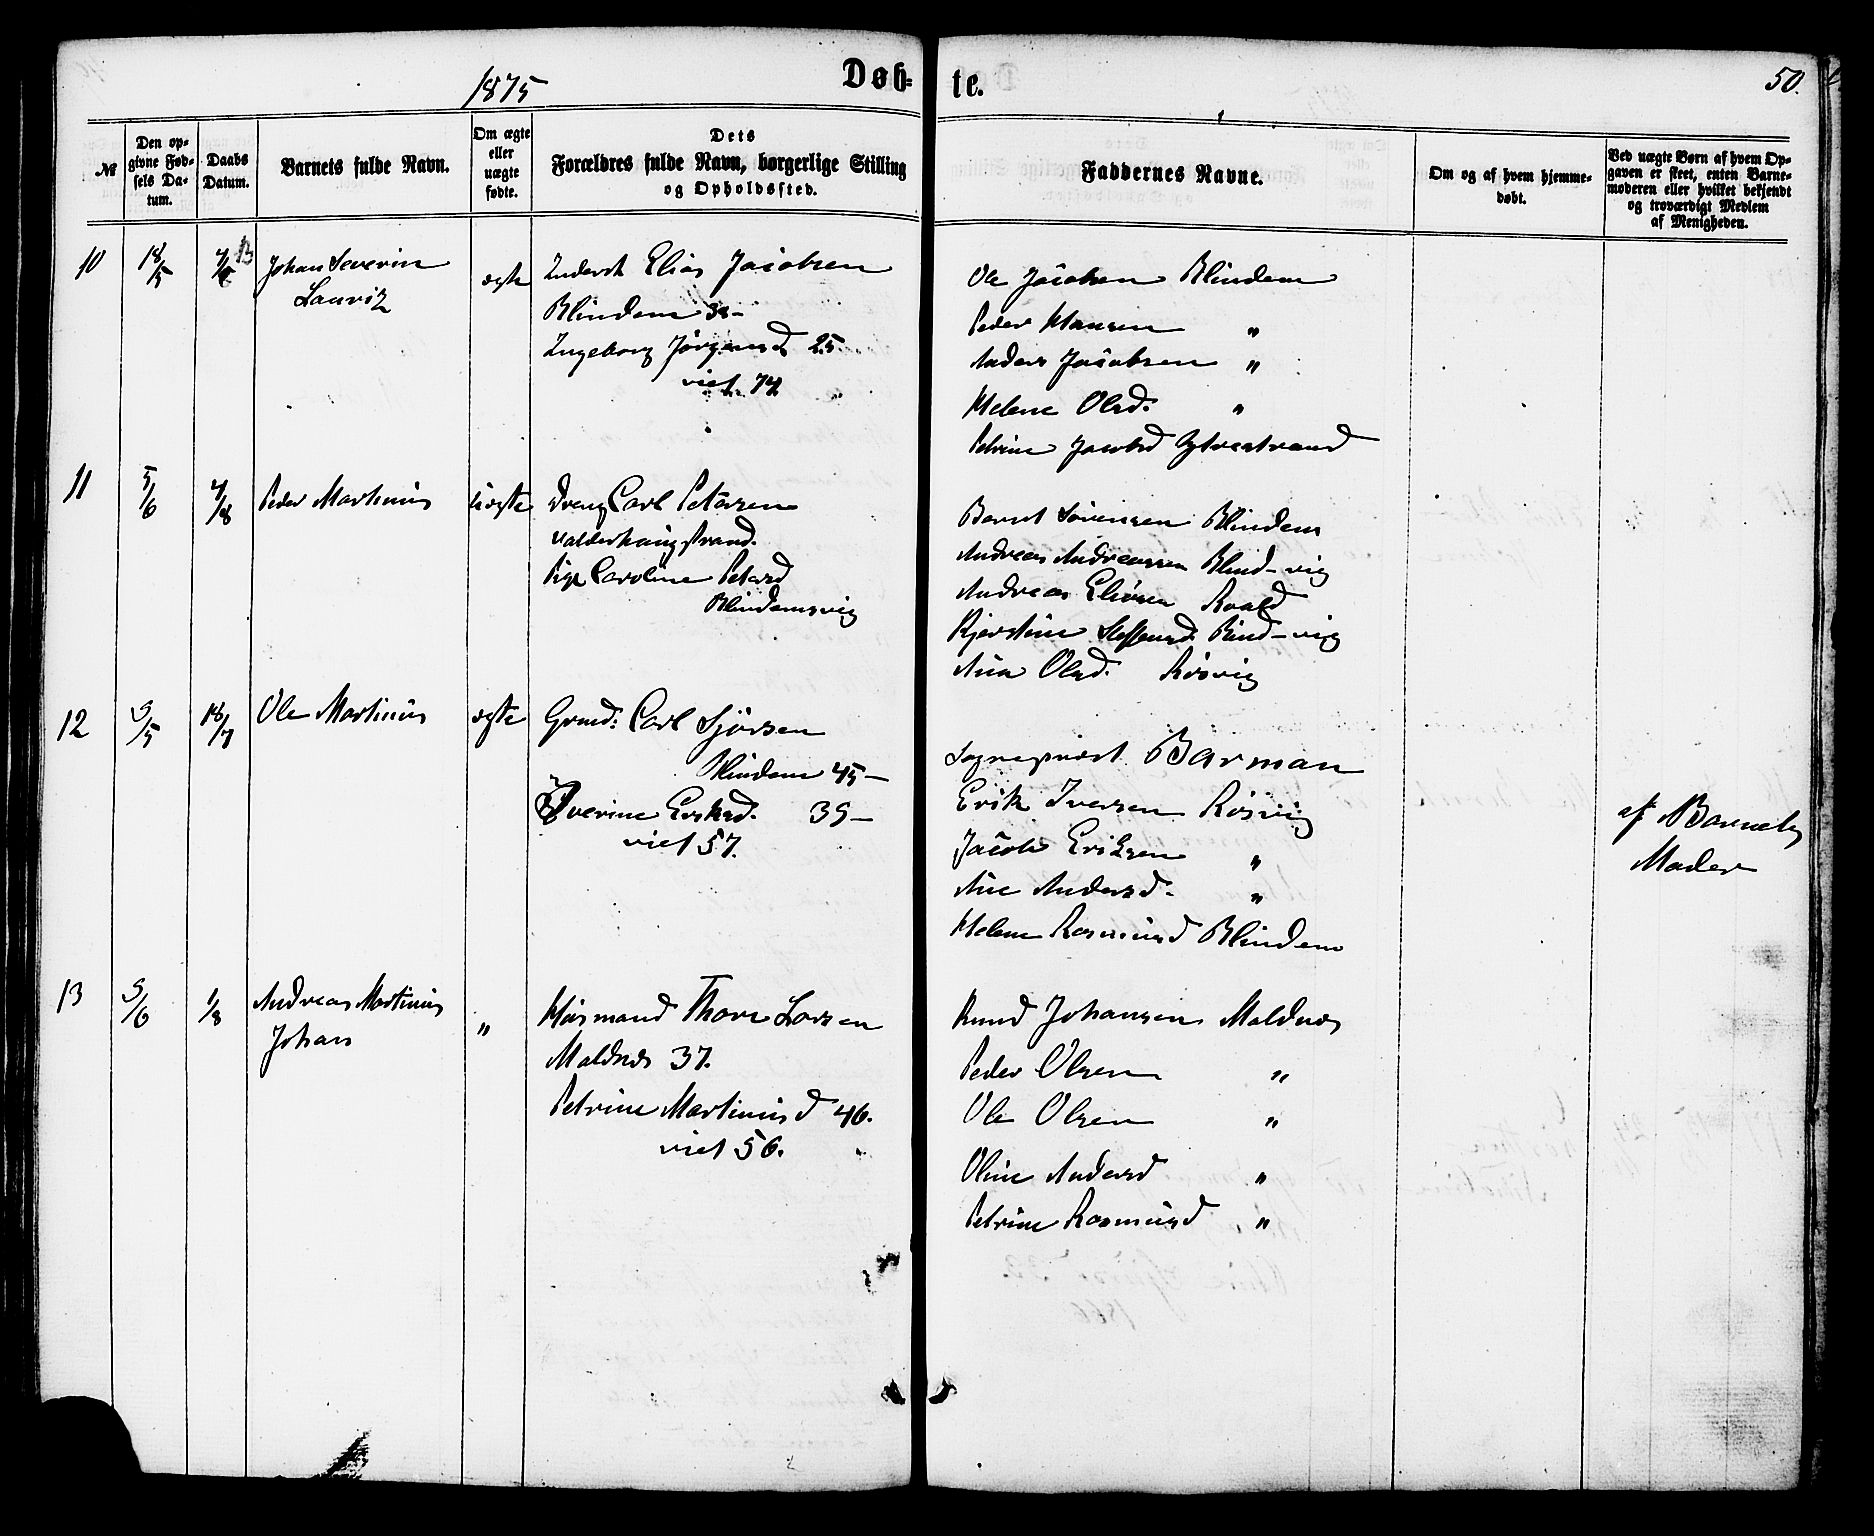 1875
Døb=
te.
50.
№
Den op-
givne Fød-
sels Da-
tum.
Daabs
Datum.
Barnets fulde Navn.
Om ægte
eller
uægte
fødte.
Dets
Forældres fulde Navn, borgerlige Stilling
og Opholdssted.
Faddernes Navne.
Om og af hvem hjemme-
døbt.
Ved uægte Børn af hvem Op-
gaven er skeet, enten Barne-
moderen eller hvilket bekjendt
og troværdigt Medlem
af Menigheden.
10 18/5 Johan Severin
Lauritz
ægte
Inderst Elias Jacobsen
Blindem
Ingeborg Jørgensd 25
viet 74
Ole Jacobsen Blindem
Peder Hansen "
Anders Jacobsen "
Helene Olsd. "
Petrine Jacobsd Ytrestrand
11 5/6 4/8 Peder Martinus uægte
Dreng Carl Petersen
Valderhaugstrand.
Pige Caroline Petersd
Blindemsvig
Bernt Sørensen Blindem
Andreas Andreassen Blind-vig
Andreas Eliasen Roald
Kjerstine Steffensd. Blind-vig
Ana Olsd. Røsvig
af Barnets
Moder
12 9/5 18/7 Ole Martinus ægte
Grmd: Carl Sjørsen
Blindem 45-
Sverine Eriksd. 39-
viet 57.
Sognepræst Barman
Erik Iversen Røsvig
Jacob Eriksen "
Ane Andersd. "
Helene Rasmusd Blindem
13 9/6 1/8 Andreas Martinus
Johan
"
Husmand Thore Larsen
Maldnæs 37.
Petrine Martinusd 46.
viet 56.
Knud Johansen Maldnæs
Peder Olsen "
Ole Olsen "
Oline Andersd "
Petrine Rasmusd "